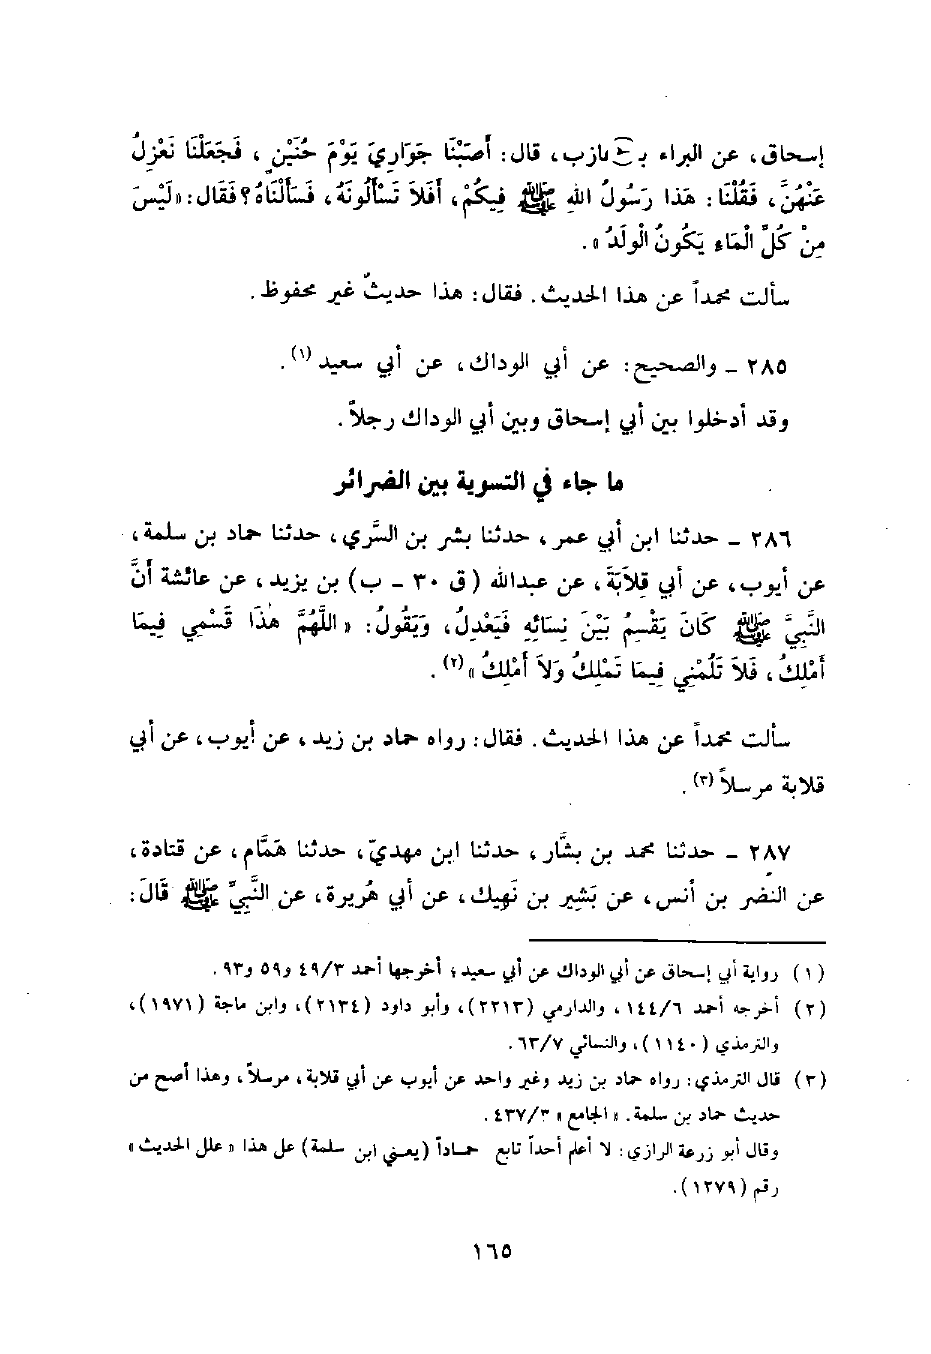 إسحاق، عن البراء بن عازب، قال: أَصَبْنَا جَوَارِيَ يَوْمَ حُنَيْنٍ، فَجَعَلْنَا نَعْزِلُ
عَنْهُنَّ، فَقُلْنَا: هَذَا رَسُولُ اللهِ ﷺ فِيكُمْ، أَفَلاَ تَسْأَلُونَهُ، فَسَأَلْنَاهُ؟ فَقَال: «لَيْسَ
مِنْ كُلِّ الْمَاءِ يَكُونُ الْوَلَدُ».
سألت محمداً عن هذا الحديث. فقال: هذا حديثٌ غير محفوظ.
٢٨٥ ـ والصحيح: عن أبي الوداك، عن أبي سعيد(١).
وقد أدخلوا بين أبي إسحاق وبين أبي الوداك رجلاً.
ما جاء في التسوية بين الضرائر
٢٨٦ ـ حدثنا ابن أبي عمر، حدثنا بشر بن السَّري، حدثنا حماد بن سلمة،
عن أيوب، عن أبي قِلاَبَةَ، عن عبدالله (ق ٣٠ ـ ب) بن يزيد، عن عائشة أَنَّ
النَّبِيَّ ﷺ كَانَ يَقْسِمُ بَيْنَ نِسَائِهِ فَيَعْدِلُ، وَيَقُولُ: «اللَّهُمَّ هٰذَا قَسْمِي فِيمَا
أَمْلِكُ، فَلاَ تَلُمْنِي فِيمَا تَمْلِكُ وَلاَ أَمْلِكُ»(٢).
سألت محمداً عن هذا الحديث. فقال: رواه حماد بن زيد، عن أيوب، عن أبي
قلابة مرسلاً(٣).
٢٨٧ ـ حدثنا محمد بن بشَّار، حدثنا ابن مهديّ، حدثنا هَمَّام، عن قتادة،
عن النضر بن أنس، عن بَشِير بن نَهِيك، عن أبي هُريرة، عن النَّبِيِّ ﷺ قَالَ:
(١) رواية أبي إسحاق عن أبي الوداك عن أبي سعيد؛ أخرجها أحمد ٤٩/٣ و٥٩ و٩٣.
(٢) أخرجه أحمد ١٤٤/٦، والدارمي (٢٢١٣)، وأبو داود (٢١٣٤)، وابن ماجة (١٩٧١)،
والترمذي (١١٤٠)، والنسائي ٦٣/٧.
(٣) قال الترمذي: رواه حماد بن زيد وغير واحد عن أيوب عن أبي قلابة، مرسلاً، وهذا أصح من
حديث حماد بن سلمة. «الجامع» ٤٣٧/٣.
وقال أبو زرعة الرازي: لا أعلم أحداً تابع حماداً (يعني ابن سلمة) على هذا «علل الحديث»
رقم (١٢٧٩).
١٦٥